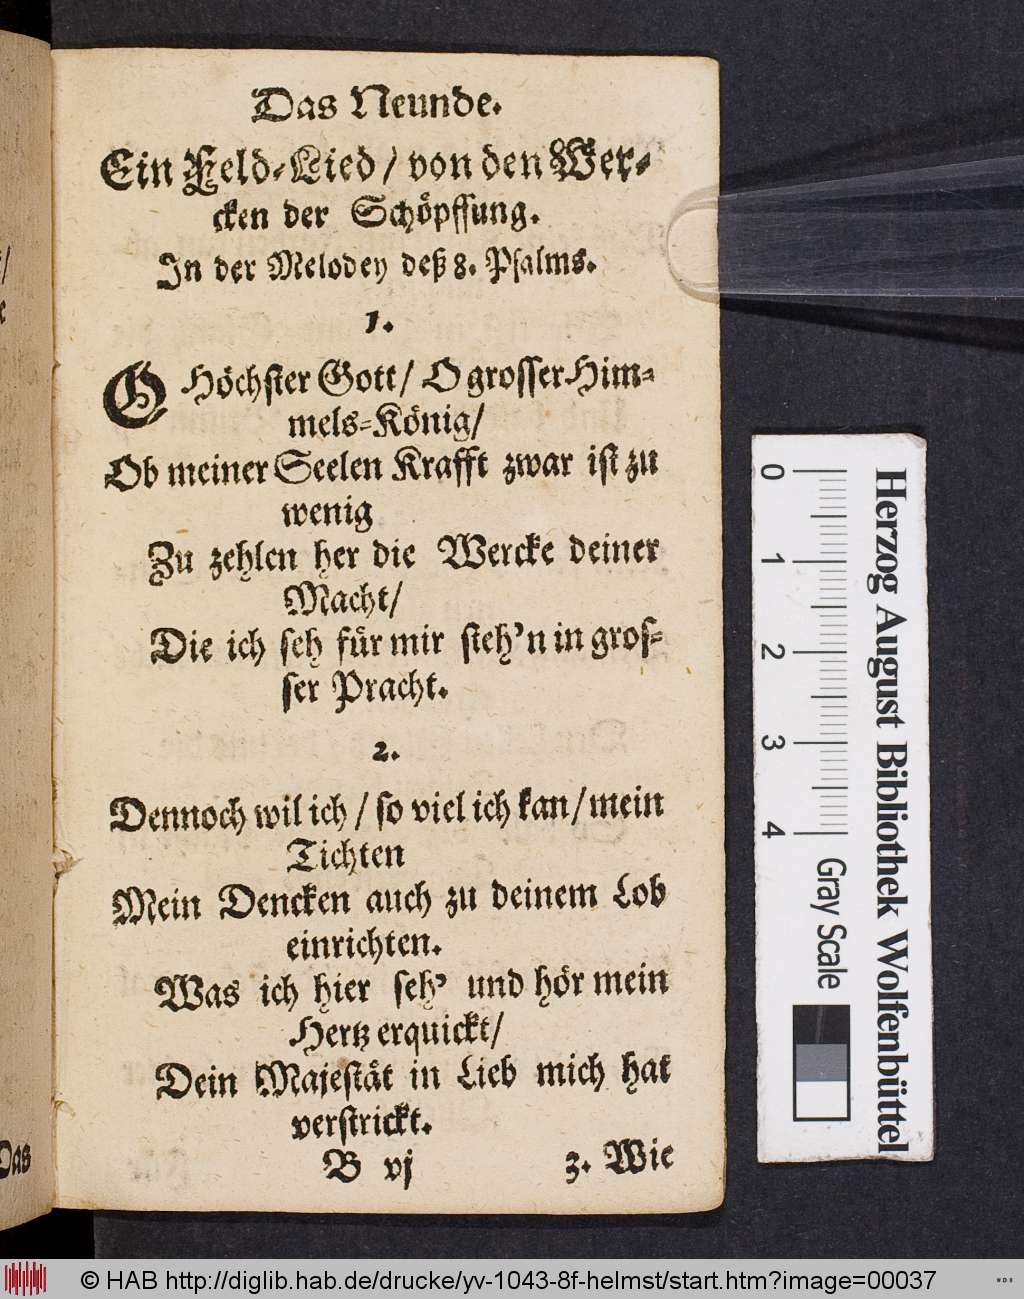 Das Neunde.
Ein Feld-Lied / von den Wer-
cken der Schöpffung.
In der Melodey deß 8. Psalms.
1.
O Höchster Gott / O grosser Him-
mels-König /
Ob meiner Seelen Krafft zwar ist zu
wenig
Zu zehlen her die Wercke deiner
Macht /
Die ich seh für mir steh'n in gros-
ser Pracht.
2.
Dennoch wil ich / so viel ich kan / mein
Tichten
Mein Dencken auch zu deinem Lob
einrichten.
Was ich hier seh' und hör mein
Hertz erquickt /
Dein Majestät in Lieb mich hat
verstrickt.
B vj
3. Wie
Das
Herzog August Bibliothek Wolfenbüttel
0 1 2 3 4 Gray Scale
© HAB http://diglib.hab.de/drucke/yv-1043-8f-helmst/start.htm?image=00037